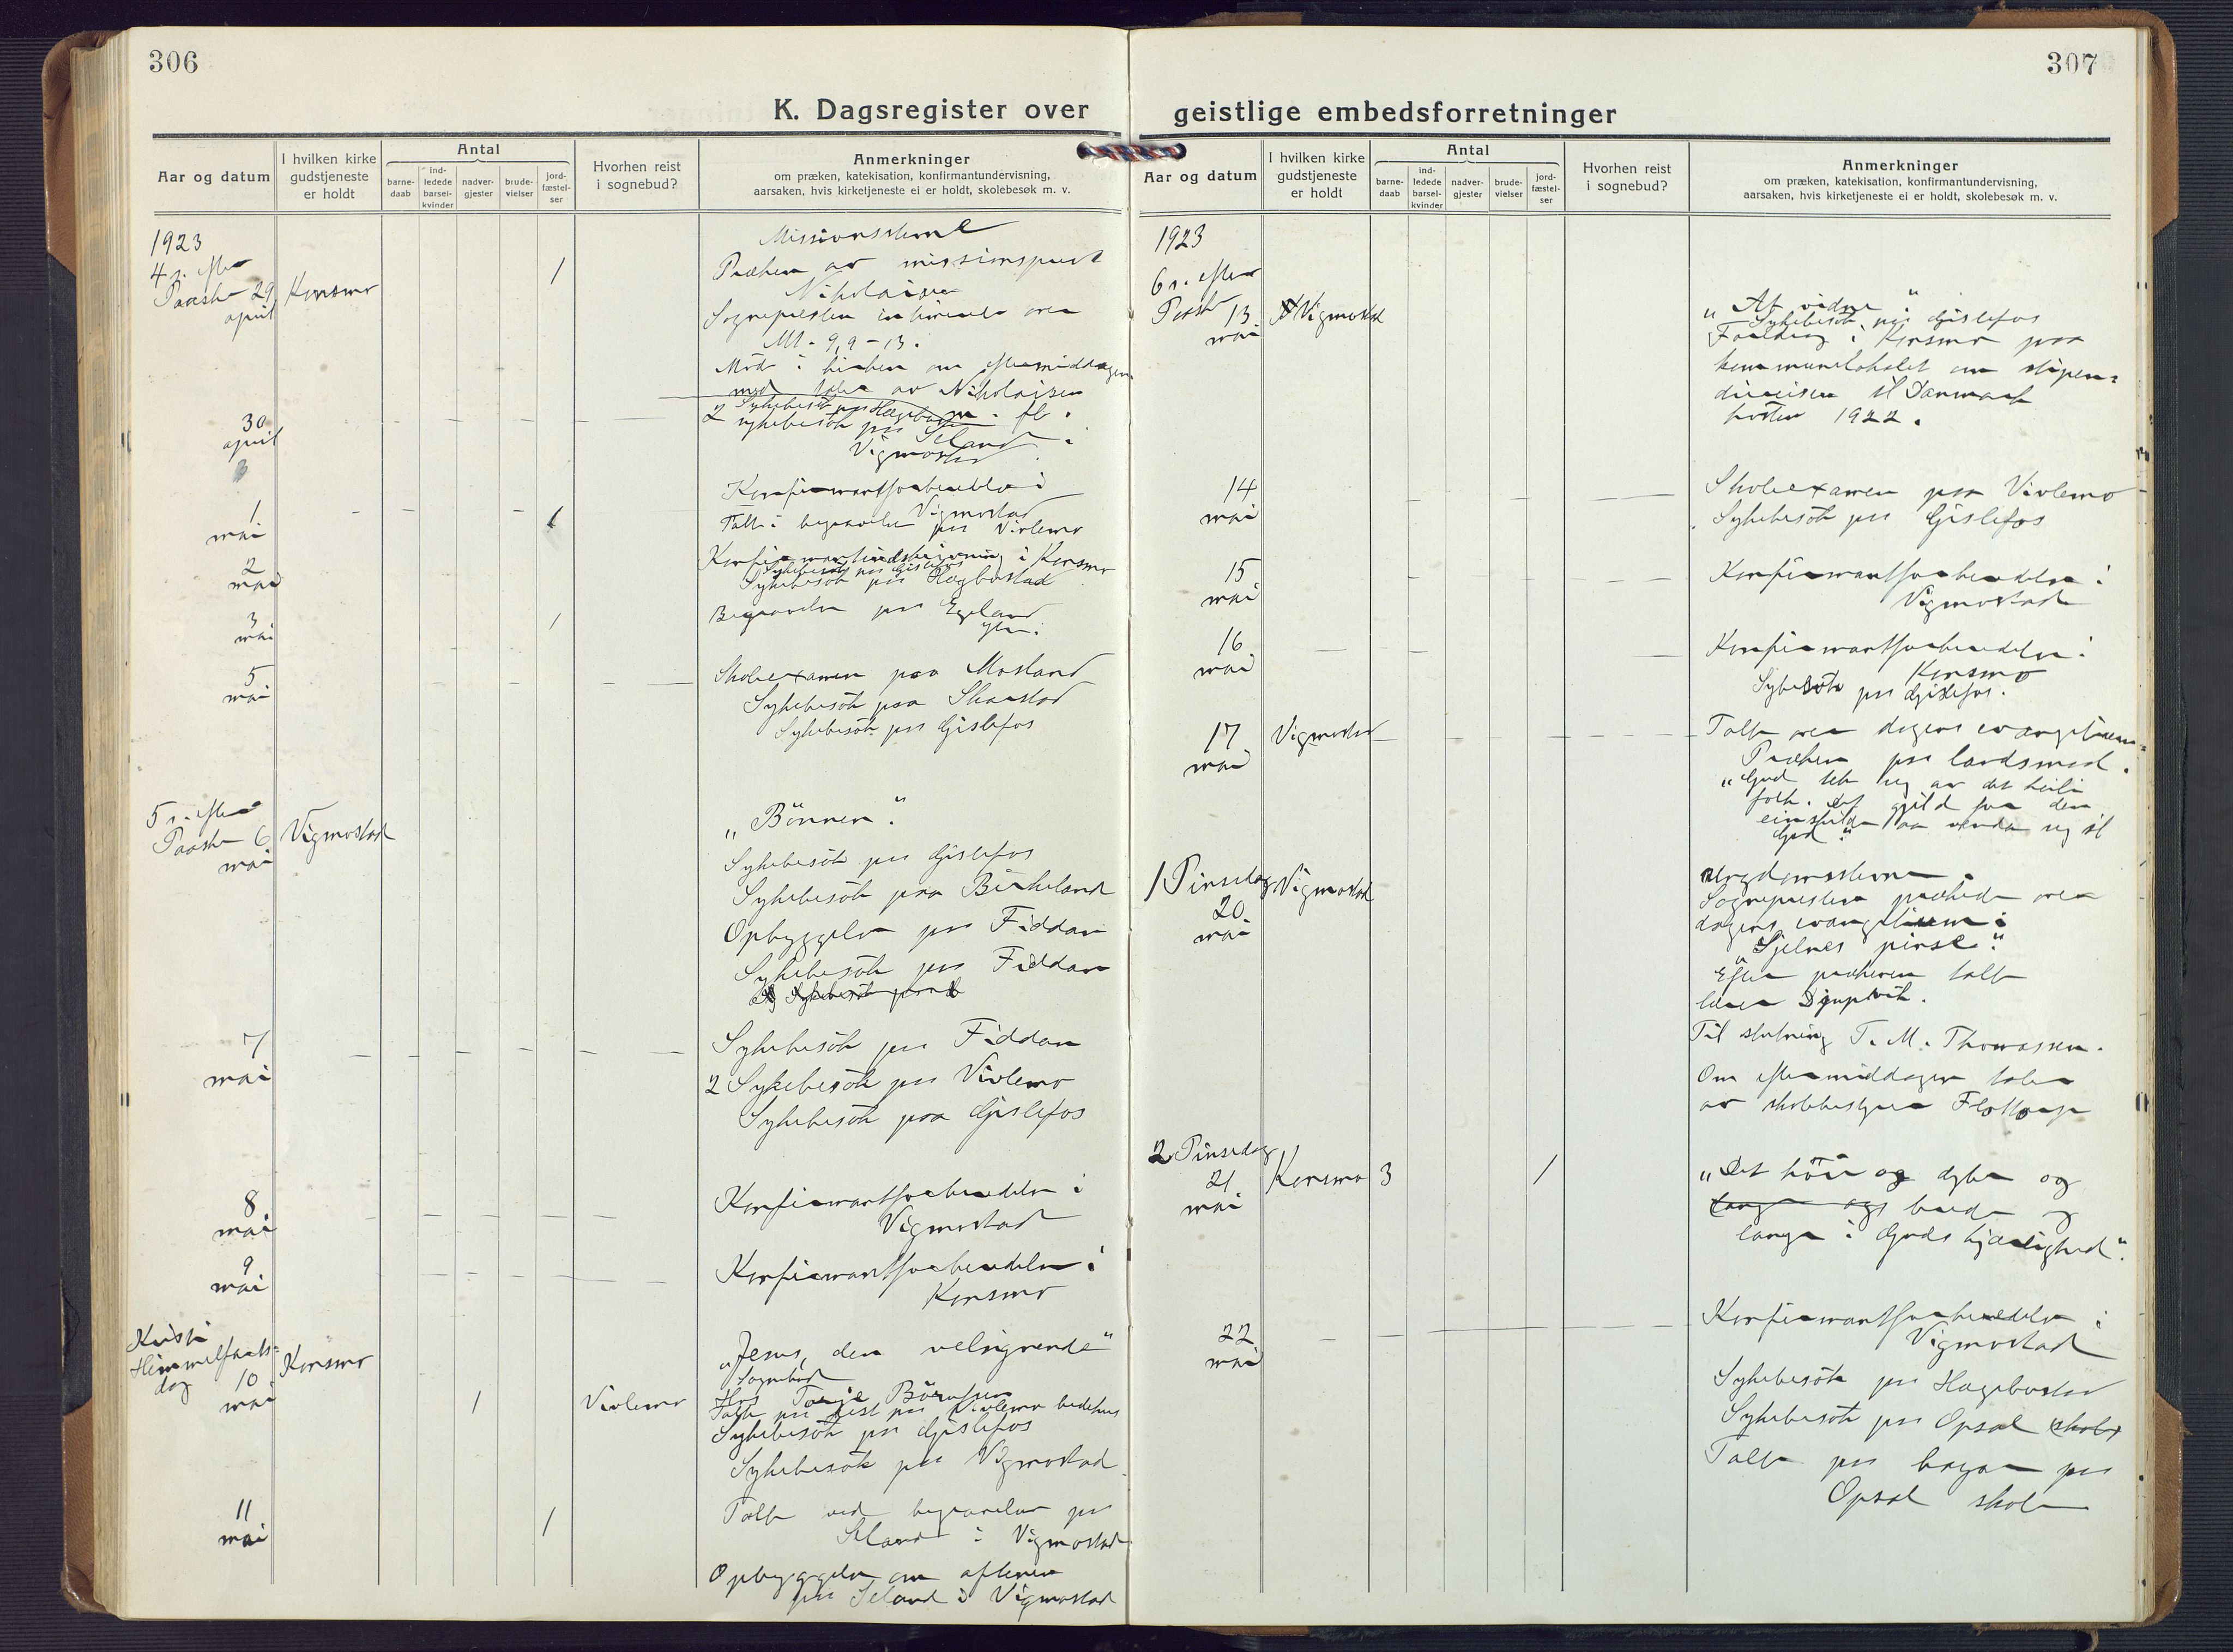 306
K. Dagsregister over
Aar og datum
I hvilken kirke
gudstjeneste
er holdt
Antal
barne-
daab
ind-
ledede
barsel-
kvinder
nadver-
gjester
brude-
vielser
jord-
fæstel-
ser
Hvorhen reist
i sognebud?
Anmerkninger
om præken, katekisation, konfirmantundervisning,
aarsaken, hvis kirketjeneste ei er holdt, skolebesøk m. v.
1923
4 s. efter
Paaske 29
april
Konsmo
1
Missionsstevne
Præken av missionsprest
Nikolaisen
Sognepresten over
Mt. 9,9-13.
Møde i kirken om eftermiddagen
med taler av Nikolaisen
m. fl.
30
april
2 sykebesök paa Seland i
Vigmostad
1
mai
1
Konfirmantforberedelse i
Vigmostad
Talte i begravelse paa Vivlemo
2
mai
Konfirmantindskrivning i Konsmo
Sykebesök paa Gislefos
Sykebesök paa Hægbostad
3
mai
1
Begravelse paa Egeland
5
mai
Skoleexamen paa Mosland
Sykebesök paa Skarstad
Sykebesök paa Gislefos
5 s. efter
Paaske 6
mai
Vigmostad
„Bönnen".
Sykebesök paa Gislefos
Sykebesök paa Birkeland
Opbyggelse paa Fiddan
Sykebesök paa Fiddan
7
mai
Sykebesök paa Fiddan
2 Sykebesök paa Vivlemo
Sykebesök paa Gislefos
8
mai
Konfirmantforberedelse i
Vigmostad
9
mai
Konfirmantforberedelse i
Konsmo
Kristi
Himmelfarts-
dag 10
mai
Konsmo
1
Vivlemo
„Jesus, den velsignende"
Sognebud
Hos Tarje Börufsen
Talte paa fest paa Vivlemo bedehus
Sykebesök paa Gislefos
Sykebesök paa Vigmostad
11
mai
1
Talte ved begravelse paa
Seland i Vigmostad
Opbyggelse om aftenen
paa Seland i Vigmostad
307
geistlige embedsforretninger
Aar og datum
I hvilken kirke
gudstjeneste
er holdt
Antal
barne-
daab
ind-
ledede
barsel-
kvinder
nadver-
gjester
brude-
vielser
jord-
fæstel-
ser
Hvorhen reist
i sognebud?
Anmerkninger
om præken, katekisation, konfirmantundervisning,
aarsaken, hvis kirketjeneste ei er holdt, skolebesøk m. v.
1923
6 s. efter
Paaske 13
mai
Vigmostad
„At vidne".
Sykebesök paa Gislefos
Foredrag i Konsmo paa
kommunelokalet om stipen-
diereisen til Danmark
hösten 1922.
14
mai
Skoleexamen paa Vivlemo
Sykebesök paa Gislefos
15
mai
Konfirmantforberedelse i
Vigmostad
16
mai
Konfirmantforberedelse i
Konsmo
Sykebesök paa Gislefos.
17
mai
Vigmostad
Talte over dagens evangelium.
Præken paa landsmaal.
„Gud tek seg av det heile
folk. Det gjeld for den
einskilde aa venda seg til
Gud."
1 Pinsedag
20
mai
Vigmostad
Ungdomsstevne.
Sognepresten prækede over
dagens evangelium:
„Sjelenes pinse".
Efter prækenen talte
lærer Djupvik.
Til slutning T. M. Thomassen.
Om eftermiddagen taler
av skolebestyrer Flottorp
2 Pinsedag
21
mai
Konsmo
3
1
„Det höie og dybe og
lange og brede og
lange i Guds kjærlighed".
22
mai
Konfirmantforberedelse i
Vigmostad
Sykebesök paa Hægebostad
Sykebesök paa Opsal skole
Talte paa basar paa
Opsal skole